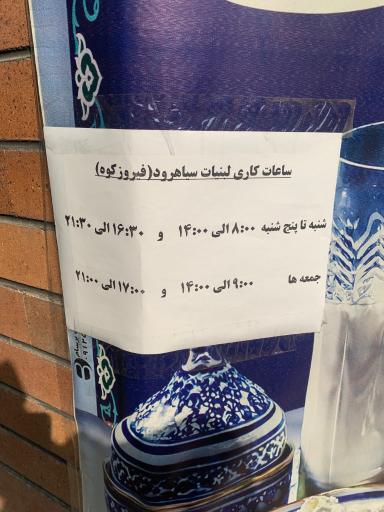 ساعات کاری لبنیات سیاهرود(فیروزکوه)
شنبه تا پنج شنبه ۸:۰۰ الی ۱۴:۰۰ و ۱۶:۳۰ الی ۲۱:۳۰
جمعه ها ۹:۰۰ الی ۱۴:۰۰ و ۱۷:۰۰ الی ۲۱:۰۰